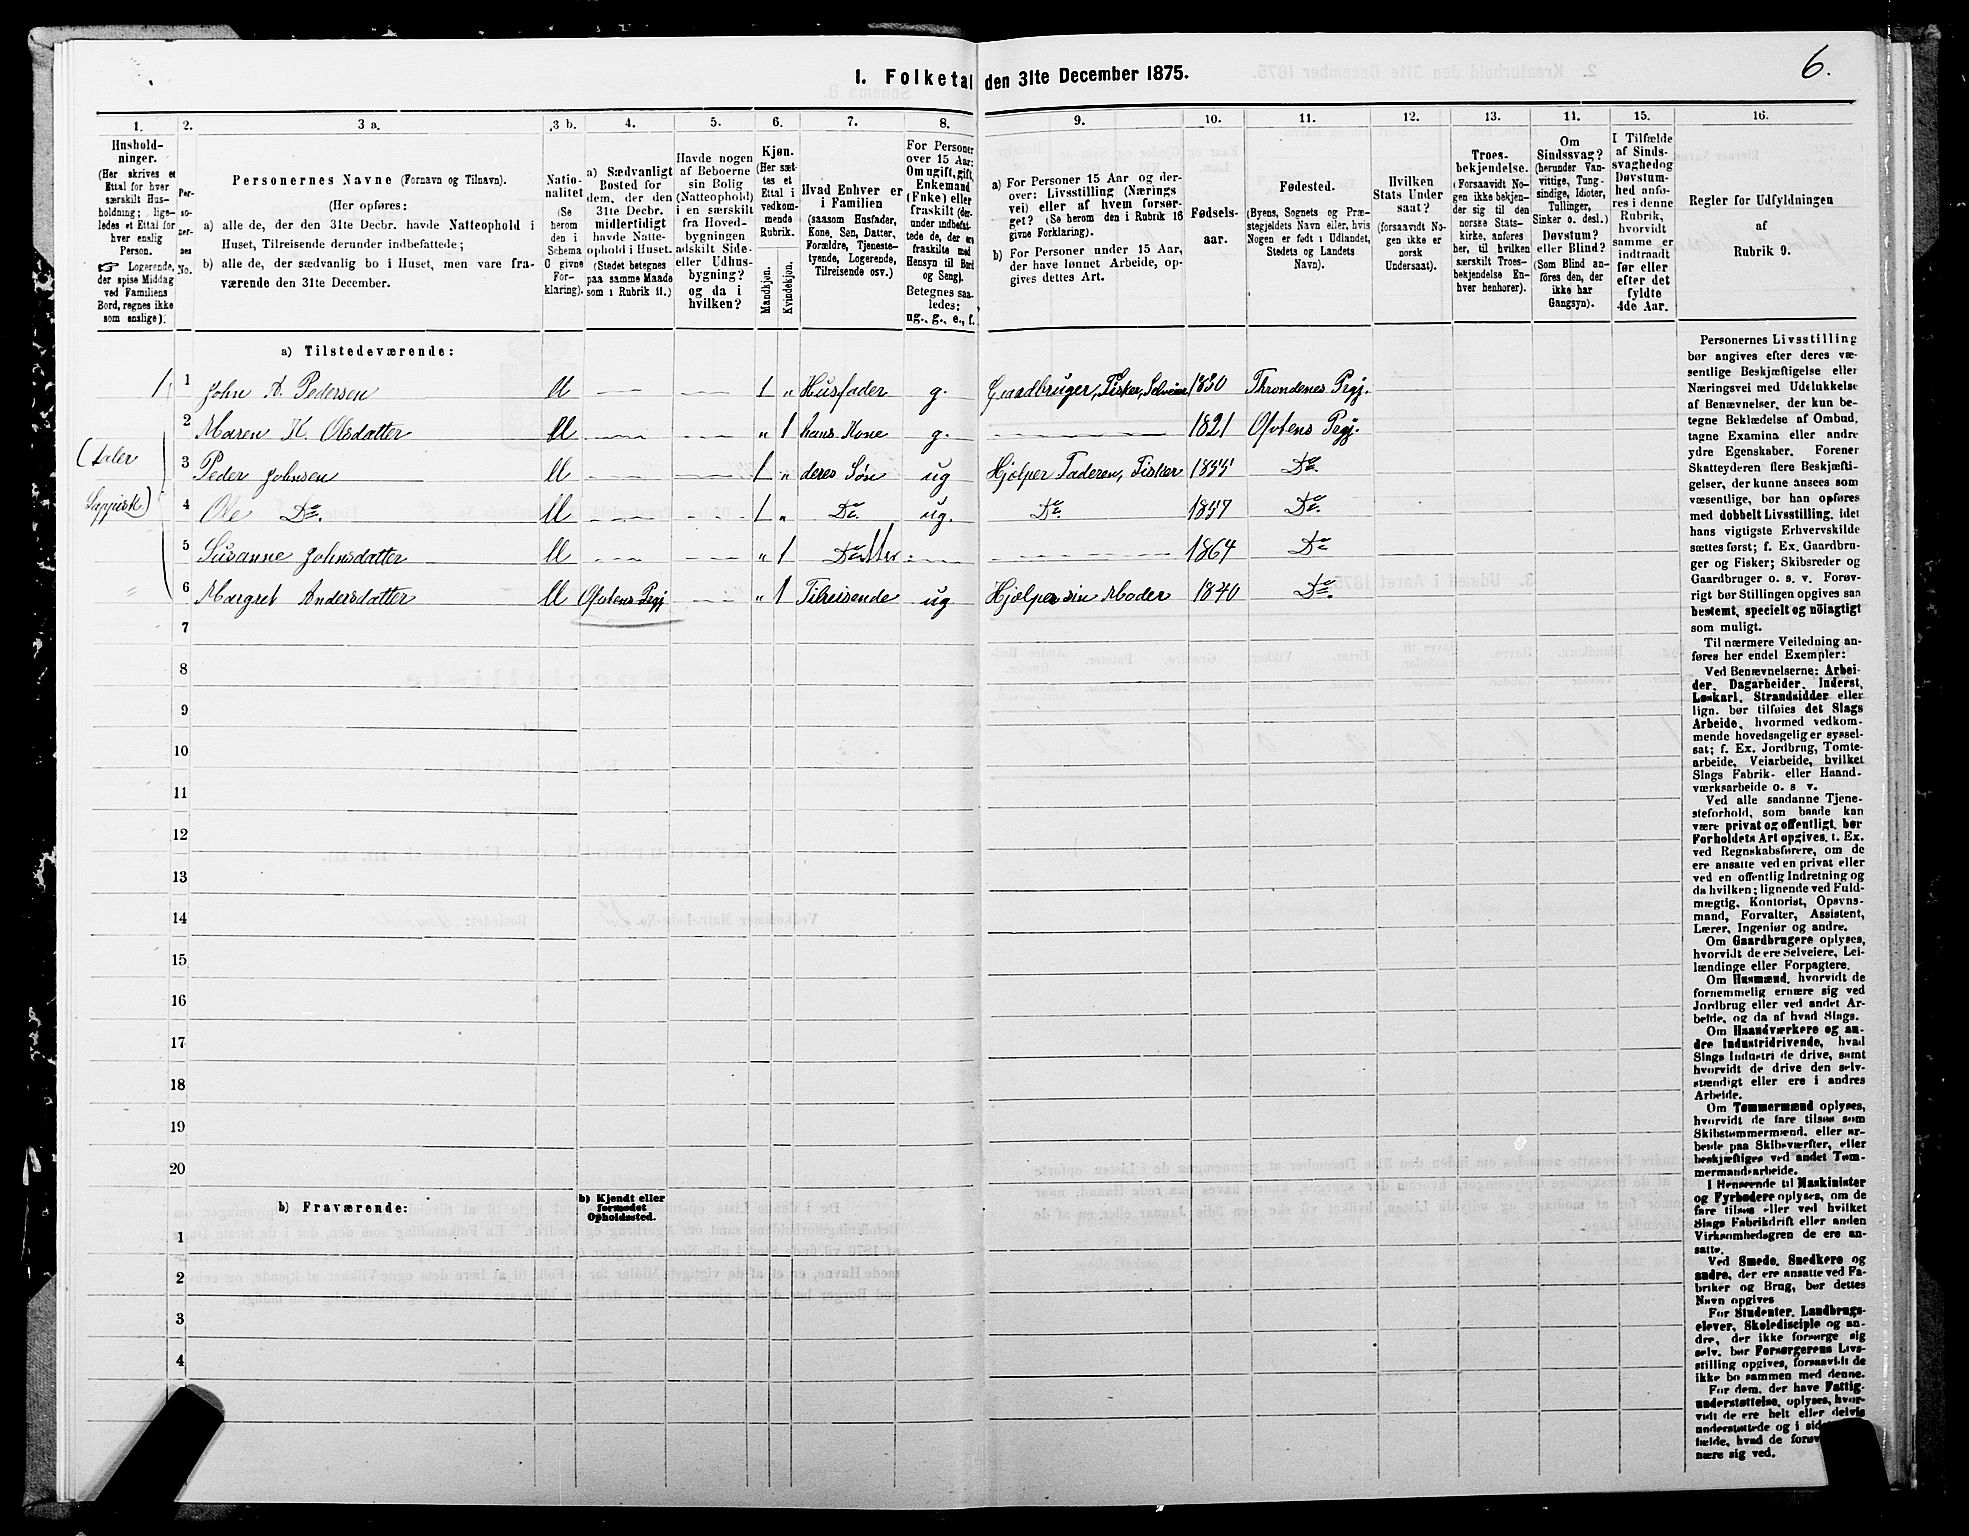 6.
1. Folketal den 31te December 1875.
1. 2. 3 a. 3 b. 4. 5. 6. 7. 8. 9. 10. 11. 12. 13. 11. 15. 16.
Hushold-
ninger.
(Her skrives et
Ettal for hver
særskilt Hus-
holdning; lige-
ledes et Ettal for
hver enslig
Person.
☞ Logerende,
der spise Middag
ved Familiens
Bord, regnes ikke
som enslige).
Per-
so-
ner-
nes
No.
Personernes Navne (Fornavn og Tilnavn).
(Her opføres:
a) alle de, der den 31te Decbr. havde Natteophold i
Huset, Tilreisende derunder indbefattede;
b) alle de, der sædvanlig bo i Huset, men vare fra-
værende den 31te December.
Natio-
nalitet
(Se
herom
den i
Schema
O givne
For-
klaring).
a) Sædvanligt
Bosted for
dem, der den
31te Decbr.
midlertidigt
havde Natte-
ophold i Huset.
(Stedet betegnes
paa samme Maade
som i Rubrik 11.)
Havde nogen
af Beboerne
sin Bolig
(Natteophold)
i en særskilt
fra Hoved-
bygningen
adskilt Side-
eller Udhus-
bygning?
og da i
hvilken?
Kjøn.
(Her sæt-
tes et
Ettal i
vedkom-
mende
Rubrik.
Mandkjøn.
Kvindekjøn.
Hvad Enhver er
i Familien
(saasom Husfader,
Kone, Søn, Datter,
Forældre, Tjeneste-
tyende, Logerende,
Tilreisende osv.)
For Personer
over 15 Aar:
Om ugift, gift,
Enkemand
(Enke) eller
fraskilt (der-
under indbefat-
tede de, der ere
fraskilte med
Hensyn til Bord
og Seng).
Betegnes saa-
ledes:
ug., g., e., f.
a) For Personer 15 Aar og der-
over: Livsstilling (Nærings
vei) eller af hvem forsør-
get? (Se herom den i Rubrik 16
givne Forklaring).
b) For Personer under 15 Aar,
der have lønnet Arbeide, op-
gives dettes Art.
Fødsels-
aar.
Fødested.
(Byens, Sognets og Præ-
stegjeldets Navn eller, hvis
Nogen er født i Udlandet,
Stedets og Landets
Navn).
Hvilken
Stats Under
saat?
(forsaavidt No-
gen ikke er
norsk
Undersaat).
Troes-
bekjendelse.
(Forsaavidt No-
gen ikke bekjen-
der sig til den
norske Stats-
kirke, anføres
her, til hvilken
særskilt Troes-
bekjendelse En-
hver henhører).
Om
Sindssvag?
(herunder Van-
vittige, Tung-
sindige, Idioter,
Tullinger,
Sinker o. desl.)
Døvstum?
eller Blind?
(Som Blind an-
føres den, der
ikke har
Gangsyn).
I Tilfælde
af Sinds-
svaghed og
Døvstum-
hed anfø-
res i denne
Rubrik,
hvorvidt
samme er
indtraadt
før eller
efter det
fyldte
4de Aar.
Regler for Udfyldningen
af
Rubrik 9.
a) Tilstedeværende:
1 1 John A. Pedersen 1 " Husfader g. Gaardbruger, Fisker, Selveier 1830 Throndenes Prgj.
2 Maren K. Olsdatter " 1 hans Kone g. 1821 Ofotens Prgj.
(taler
3 Peder Johnsen 1 " deres Søn ug Hjelper Faderen, Fisker 1855 Do
Lappisk)
4 Ole Do. 1 " Do. ug. Do. 1857 Do
5 Susanne Johnsdatter " 1 1864 Do
6 Margret Andersdatter Ofotens Prgj " 1 Tilreisende ug Hjelper sin Moder 1840 Do.
7
8
9
10
11
12
13
14
15
16
17
18
19
20
b) Fraværende:
b) Kjendt eller
formodet
Opholdssted.
1
2
3
4
Personernes Livsstilling
bør angives efter deres væ-
sentlige Beskjæftigelse eller
Næringsvei med Udelukkelse
af Benævnelser, der kun be-
tegne Beklædelse af Ombud,
tagne Examina eller andre
ydre Egenskaber. Forener
Skatteyderen flere Beskjæfti-
gelser, der kunne ansees som
væsentlige, bør han opføres
med dobbelt Livsstilling, idet
hans vigtigste Erhvervskilde
sættes først; f. Ex. Gaardbru-
ger og Fisker; Skibsreder og
Gaardbruger o. s. v. Forøv-
rigt bør Stillingen opgives saa
bestemt, specielt og nøiagtigt
som muligt.
Til nærmere Veiledning an-
føres her endel Exempler:
Ved Benævnelserne: Arbei-
der, Dagarbeider, Inderst,
Løskarl, Strandsidder eller
lign. bør tilføies det Slags
Arbeide, hvormed vedkom-
mende hovedsagelig er syssel-
sat; f. Ex. Jordbrug, Tomte-
arbeide, Veiarbeide, hvilket
Slags Fabrik- eller Haand-
værksarbeide o. s v.
Ved alle saadanne Tjene-
steforhold, som baade kan
være privat og offentligt, bør
Forholdets Art opgives, t. Ex.
ved Regnskabsførere, om de
ere ansatte ved en privat eller
ved en offentlig Indretning og
da hvilken; lignende ved Fuld-
mægtig, Kontorist, Opsyns-
mand, Forvalter, Assistent,
Lærer, Ingeniør og andre.
Om Gaardbrugere oplyses,
hvorvidt de ere Selveiere, Lei-
lændinge eller Forpagtere.
Om Husmænd, hvorvidt de
fornemmelig ernære sig ved
Jordbrug eller ved andet Ar-
beide, og da af hvad Slags.
Om Haandværkere og an-
dre Industridrivende, hvad
Slags Industri de drive, samt
hvorvidt de drive den selv-
stændigt eller ere i andres
Arbeide.
Om Tømmermænd oplyses,
hvorvidt de fare tilsøs som
Skibstømmermænd, eller ar-
beide paa Skibsværfter, eller
beskjæftiges ved andet Tøm-
mermandsarbeide.
I Henseende til Maskinister
og Fyrbødere oplyses, om de
fare tilsøs eller ved hvilket
Slags Fabrikdrift eller anden
Virksomhedsgren de ere an-
satte.
Ved Smede, Snedkere og
andre, der ere ansatte ved Fa-
briker og Brug, bør dettes
Navn opgives
For Studenter, Landbrugs-
elever, Skoledisciple og an-
dre, der ikke forsørge sig
selv, bør Forsørgerens Livs-
stilling opgives, forsaavidt de
ikke bo sammen med denne.
For dem, der have Fattig-
understøttelse, oplyses, hvor-
vidt de ere helt eller delvis
understøttede og i sid
fælde, hvad de forøv
nære sig ved.